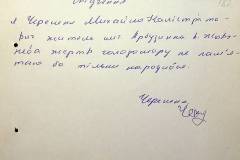 Свідчення
я Черешня Михайло Калістрато-
вич житель смт Арбузинка в. Жовт-
нева жертв голодомору не пам'я-
таю бо тільки народився.
Черешня